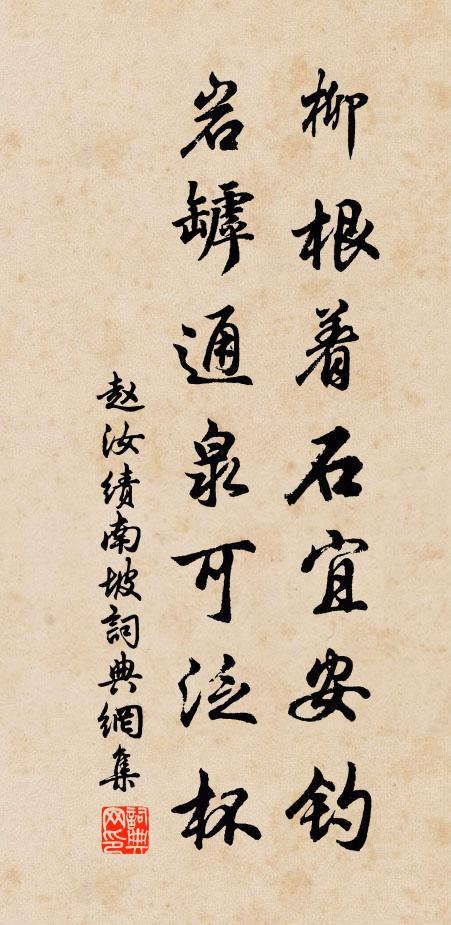 柳根着石宜安钓
岩罅通泉可泛杯
赵汝绩南坡詞典網集
詞典网印